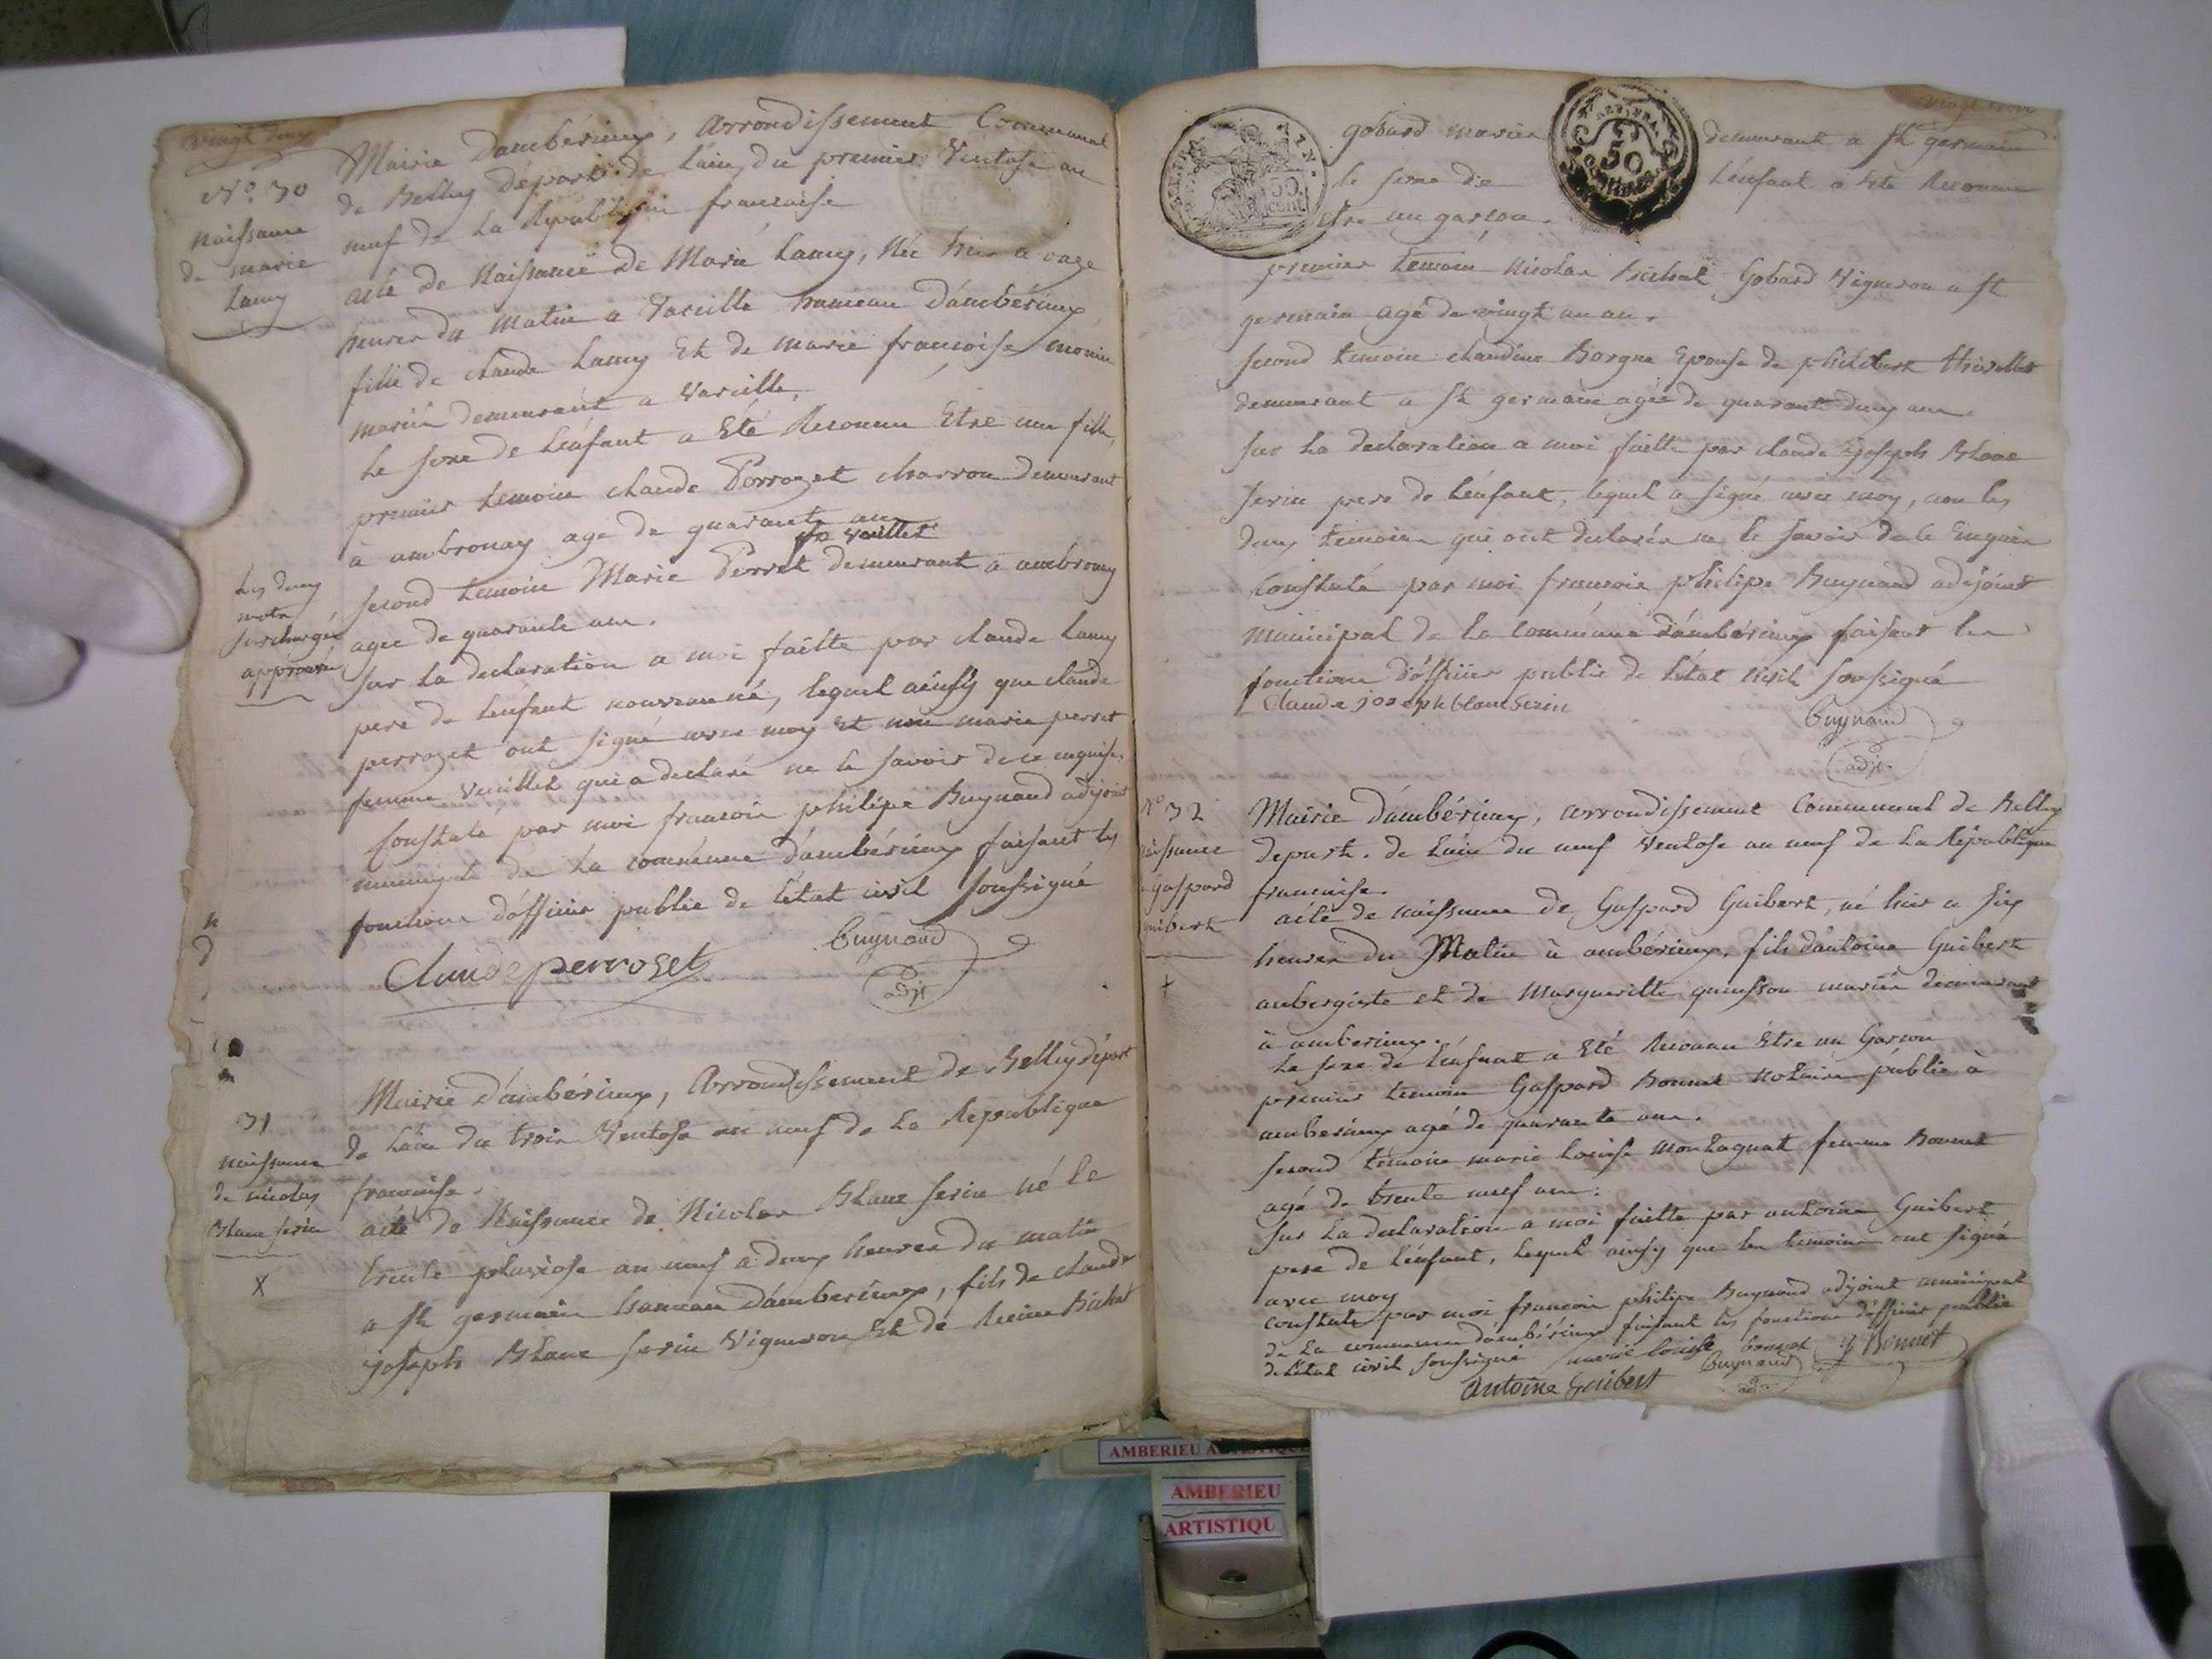 vingt deux
N° 30
Naissance
de marie
Lamy
Mairie d'ambérieux, arrondissement Communal
de Belley départ. de L'ain, du premier Ventose an
neuf de La République francaise
acte de Naissance de Marie Lamy, Née hier a onze
heures du matin a Vareille hameau d'ambérieux
fille de claude Lamy Et de marie francoise monin
mariés demeurant a Vareille,
Le sexe de L'enfant a Eté Reconnu Etre une fille,
premier temoin claude Perrozet charron demeurant
à ambronay agé de quarante ans
fe Vuillet
second temoin Marie Perret demeurant a ambronay
agee de quarante ans.
Les deux
mots
surchargés
approuvé
sur La declaration a moi faitte par claude Lamy
pere de L'enfant nouveau né, lequel ainsy que claude
perrozet ont signé avec moy Et non marie perret
femme Vuillet qui a declaré ne le savoir de ce enquise.
Constaté par moi francois philipe Buynand adjoint
municipal de La commune d'ambérieux faisant les
fonctions d'officier public de L'état civil soussigné
Claude perrozet
Buynand
adjt
31
naissance
de nicolas
Blanc serin
X
Mairie d'ambérieux, Arrondissement de Belley départ
de L'ain du trois Ventose an neuf de La Republique
francaise.
acte de Naissance de Nicolas Blanc serin né le
trente pluviose an neuf a deux heures du matin
a st germain hameau d'ambérieux, fils de claude
joseph Blanc serin Vigneron Et de Reine Bichat
vingt trois
50
cent
50
gobard mariés demeurant a st germain
le sexe de L'enfant a Eté Reconnu
etre un garson.
premier temoin Nicolas Bichat Gobard Vigneron a st
germain agé de vingt un an.
second temoin claudine Borgne Epouse de philibert thivollet
demeurant a st germain agée de quarante deux ans.
sur La declaration a moi faitte par claude joseph Blanc
serin pere de L'enfant, lequel a signé avec moy, non les
deux temoins qui ont declarés ne le savoir de ce Enquis
Constaté par moi francois philipe Buynand adjoint
municipal de la commune d'ambérieux faisant les
fonctions d'officier public de L'état civil soussigné
Claude joseph blanc serin
Buynand
adjt.
N° 32
naissance
Gaspard
Guibert
+
Mairie d'ambérieux, arrondissement Communal de Belley
depart. de L'ain du neuf Ventose an neuf de La République
francaise.
acte de naissance de Gaspard Guibert, né hier a six
heures du Matin à ambérieux, fils d'antoine Guibert
aubergiste et de Margueritte mariés demeurant
à amberieux.
Le sexe de L'enfant a Eté Reconnu Etre un Garson
premier temoin Gaspard Bonnet Notaire public à
amberieux agé de quarante ans.
second temoin marie Louise montagnat femme Bonnet
agé de trente neuf ans.
Sur La declaration a moi faitte par antoine Guibert
pere de L'enfant, lequel ainsy que les temoins ont signé
avec moy
constaté par moi francois philipe Buynand adjoint municipal
de La commune d'ambérieux faisant les fonctions d'officier public
de L'état civil soussigné marie louise bonnet g Bonnet
Antoine Guibert Buynand
adjt
AMBERIEU
AMBERIEU
ARTISTIQU